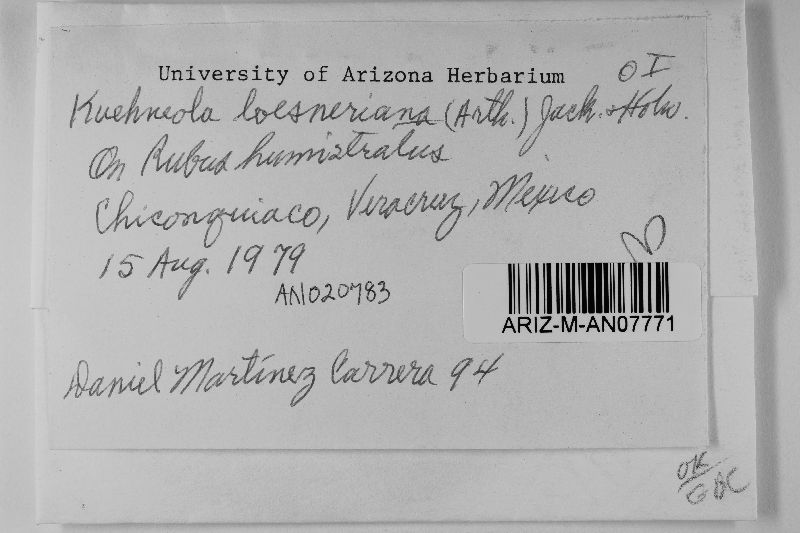 University of Arizona Herbarium O I
Kuehneola loesneriana (Arth.) Jack. & Holw.
On Rubus humistratus
Chiconquiaco, Veracruz, México
15 Aug. 1979
AN020783
ARIZ-M-AN07771
Daniel Martínez Carrera 94
OK